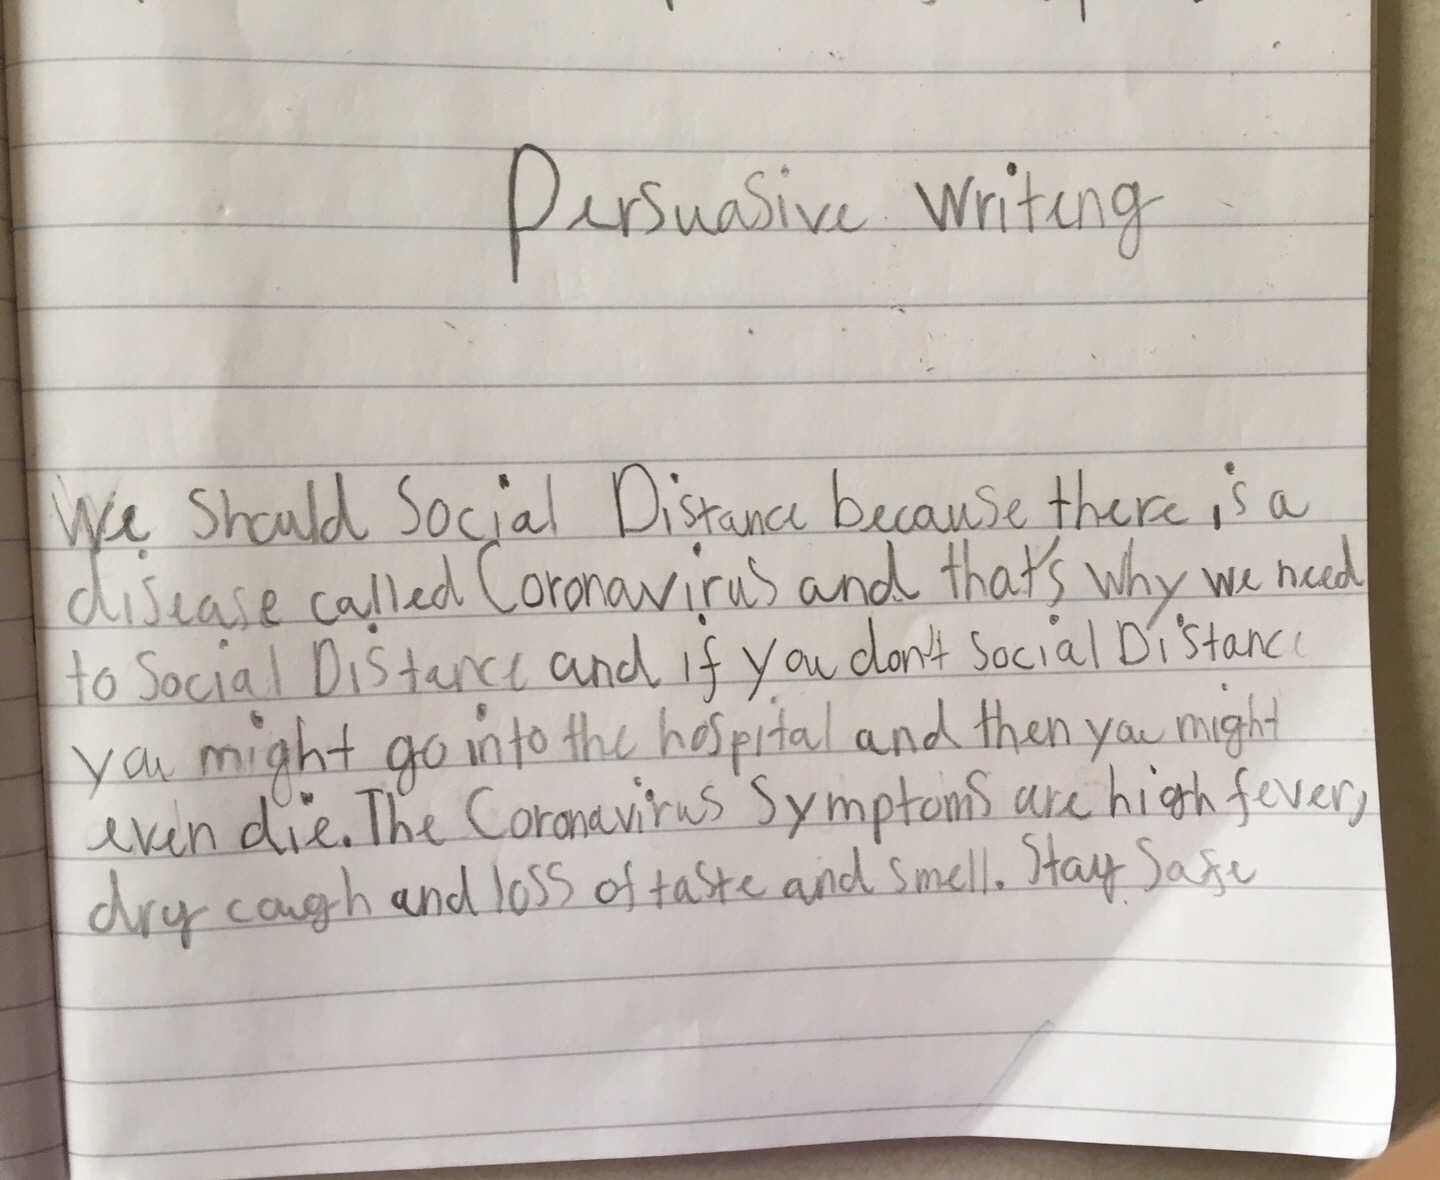 Persuasive Writing
We Should Social Distance because there is a
disease called Coronavirus and that's why we need
to Social Distance and if you don't Social Distance
you might go into the hospital and then you might
even die. The Coronavirus Symptoms are high fever,
dry cough and loss of taste and smell. Stay Safe